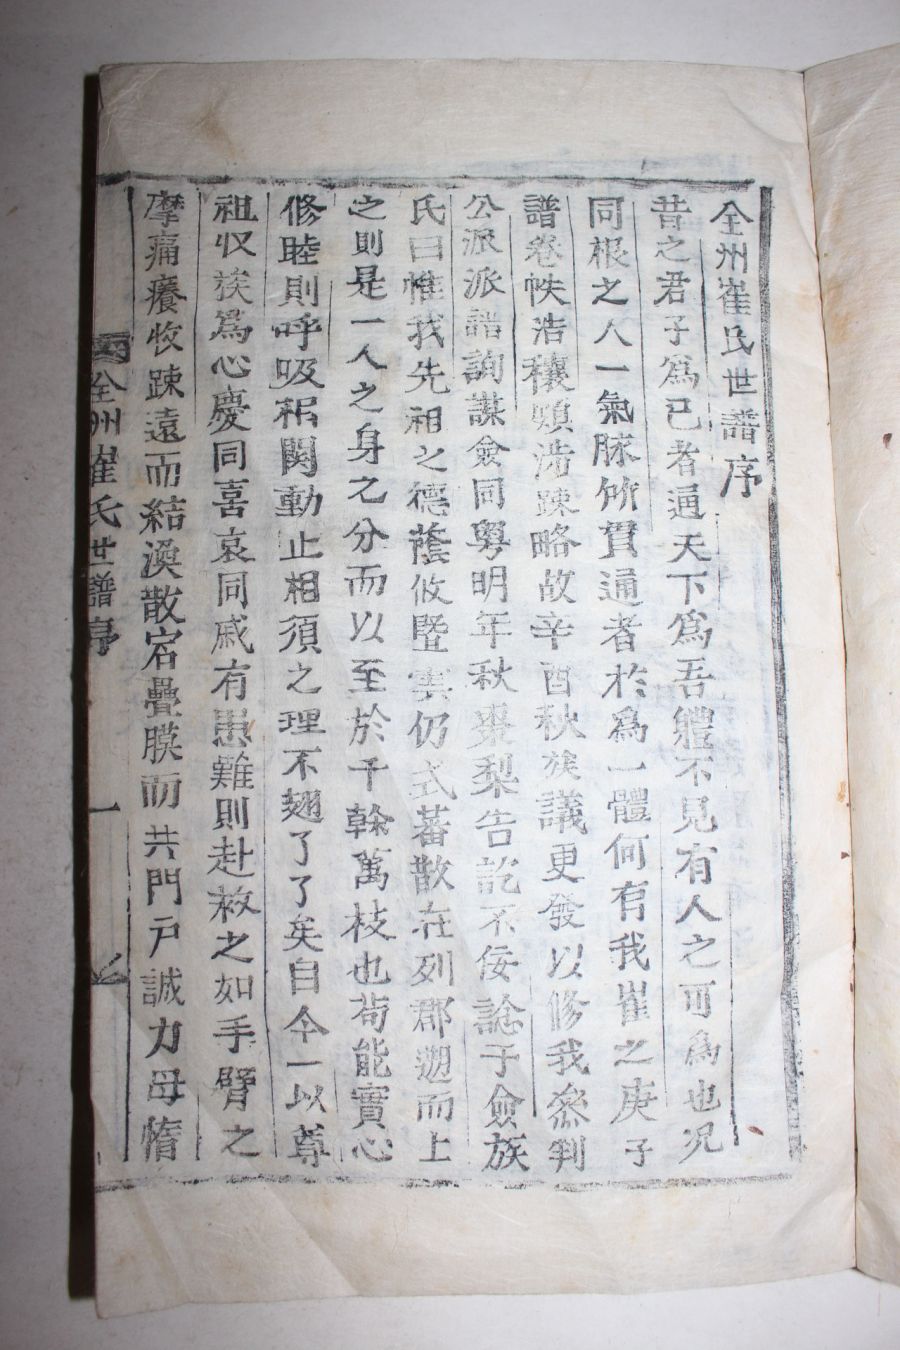 全州崔氏世譜序
昔之君子爲己者通天下爲吾軆不見有人之可爲也况
同根之人一氣脉所貫通者於爲一體何有我崔之庚子
譜卷帙浩穰頗涉踈略故辛酉秋族議更發以修我叅判
公派派譜詢謀僉同粤明年秋棗梨告訖不佞諗于僉族
氏曰惟我先祖之德蔭攸曁雲仍式蕃散在列郡遡而上
之則是一人之身之分而以至於千榦萬枝也苟能實心
修睦則呼吸相関動止相須之理不翅了了矣自今一以尊
祖収族爲心慶同喜哀同慼有患難則赴救之如手臂之
摩痛癢收踈遠而結渙散宕疊膜而共門戸誠力母惰
全州崔氏世譜序 一